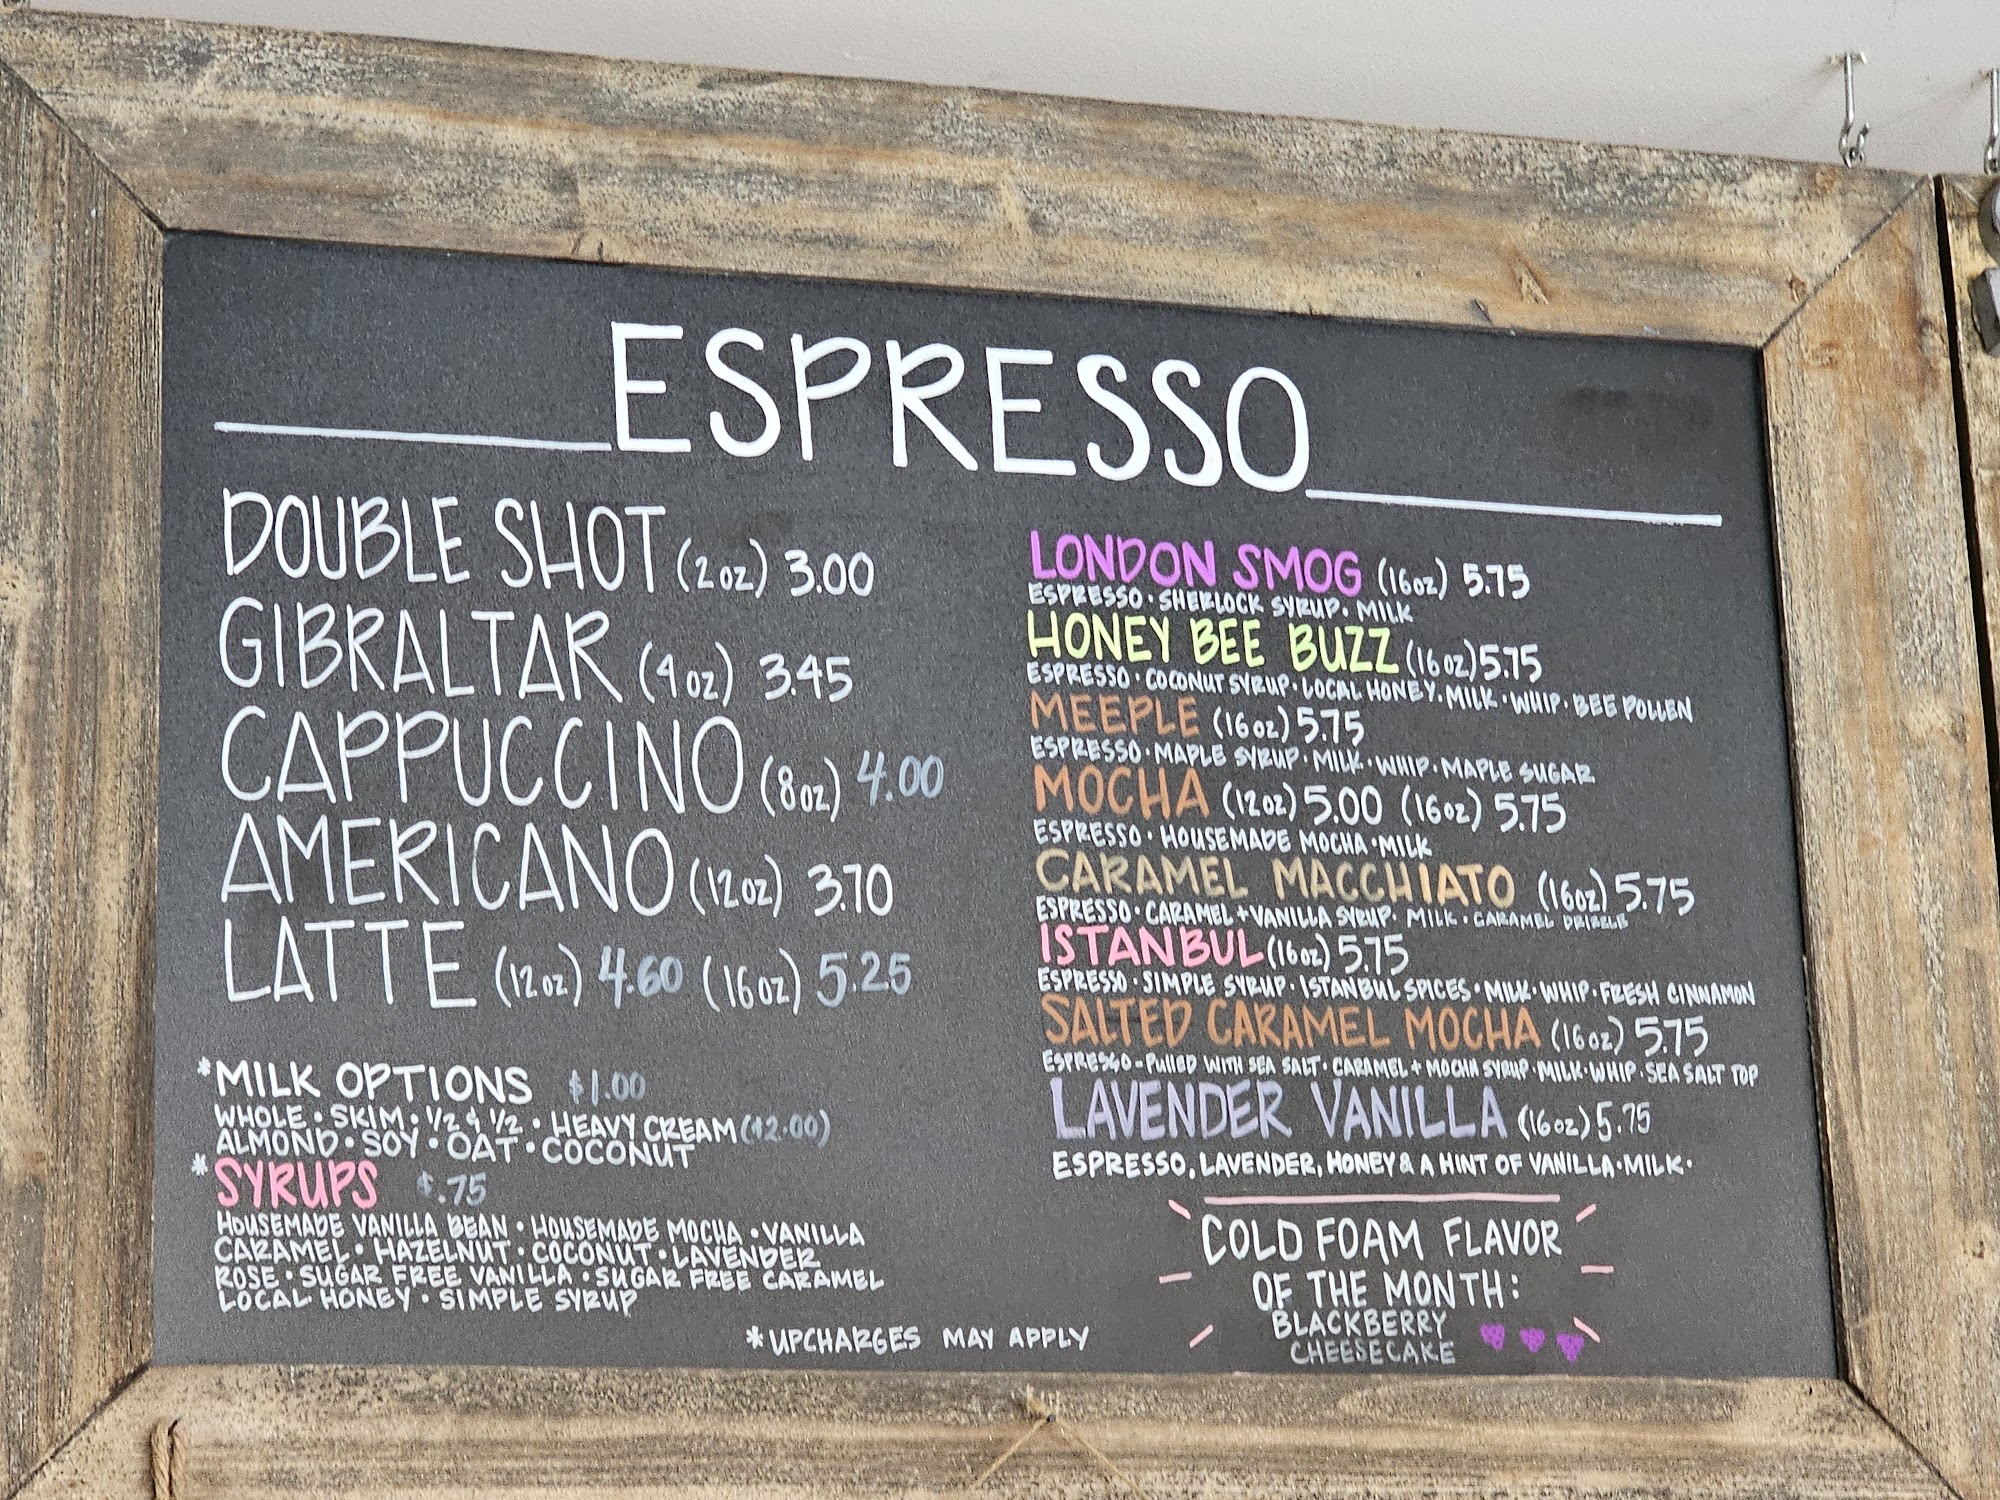 ESPRESSO
DOUBLE SHOT (2oz) 3.00
GIBRALTAR (4oz) 3.45
CAPPUCCINO (8oz) 4.00
AMERICANO (12oz) 3.70
LATTE (12oz) 4.60 (16oz) 5.25
*MILK OPTIONS $1.00
WHOLE · SKIM · 1/2 & 1/2 · HEAVY CREAM ($2.00)
ALMOND · SOY · OAT · COCONUT
*SYRUPS $.75
HOUSEMADE VANILLA BEAN · HOUSEMADE MOCHA · VANILLA
CARAMEL · HAZELNUT · COCONUT · LAVENDER
ROSE · SUGAR FREE VANILLA · SUGAR FREE CARAMEL
LOCAL HONEY · SIMPLE SYRUP
LONDON SMOG (16oz) 5.75
ESPRESSO · SHERLOCK SYRUP · MILK
HONEY BEE BUZZ (16oz) 5.75
ESPRESSO · COCONUT SYRUP · LOCAL HONEY · MILK · WHIP · BEE POLLEN
MEEPLE (16oz) 5.75
ESPRESSO · MAPLE SYRUP · MILK · WHIP · MAPLE SUGAR
MOCHA (12oz) 5.00 (16oz) 5.75
ESPRESSO · HOUSEMADE MOCHA · MILK
CARAMEL MACCHIATO (16oz) 5.75
ESPRESSO · CARAMEL + VANILLA SYRUP · MILK · CARAMEL DRIZZLE
ISTANBUL (16oz) 5.75
ESPRESSO · SIMPLE SYRUP · ISTANBUL SPICES · MILK · WHIP · FRESH CINNAMON
SALTED CARAMEL MOCHA (16oz) 5.75
ESPRESSO - PULLED WITH SEA SALT · CARAMEL + MOCHA SYRUP · MILK · WHIP · SEA SALT TOP
LAVENDER VANILLA (16oz) 5.75
ESPRESSO, LAVENDER, HONEY & A HINT OF VANILLA · MILK ·
COLD FOAM FLAVOR
OF THE MONTH:
BLACKBERRY
CHEESECAKE
*UPCHARGES MAY APPLY